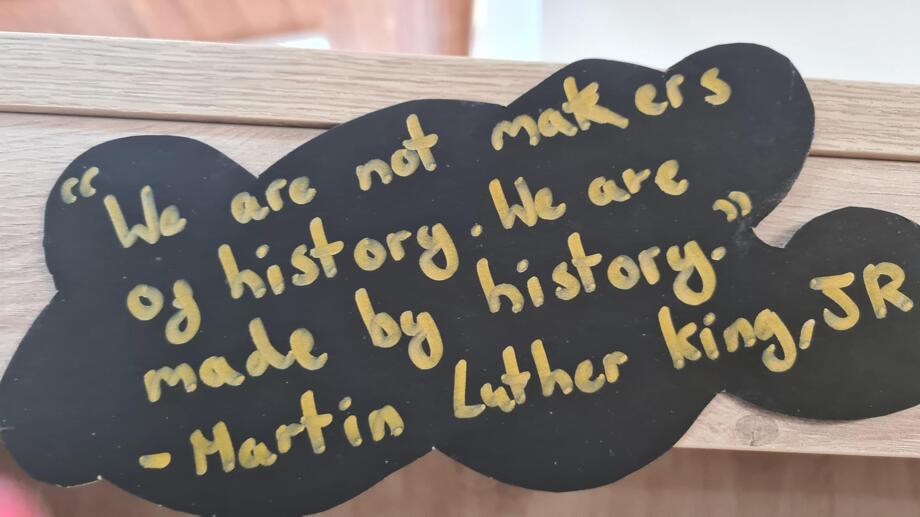 "We are not makers
of history. We are
made by history."
- Martin Luther king, JR